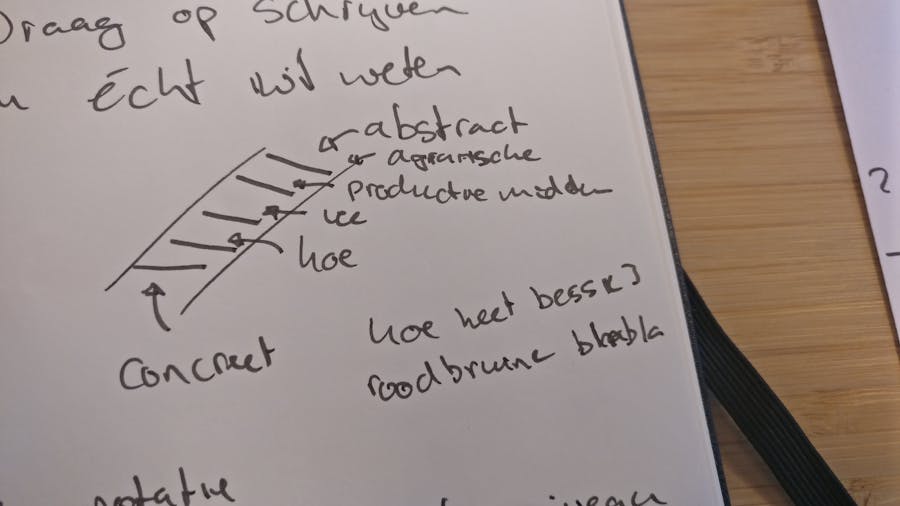 Draag op schrijven
écht wil weten
abstract
agrarische
productive midden
vee
koe
concreet
koe heet bess
roodbruine blabla
?